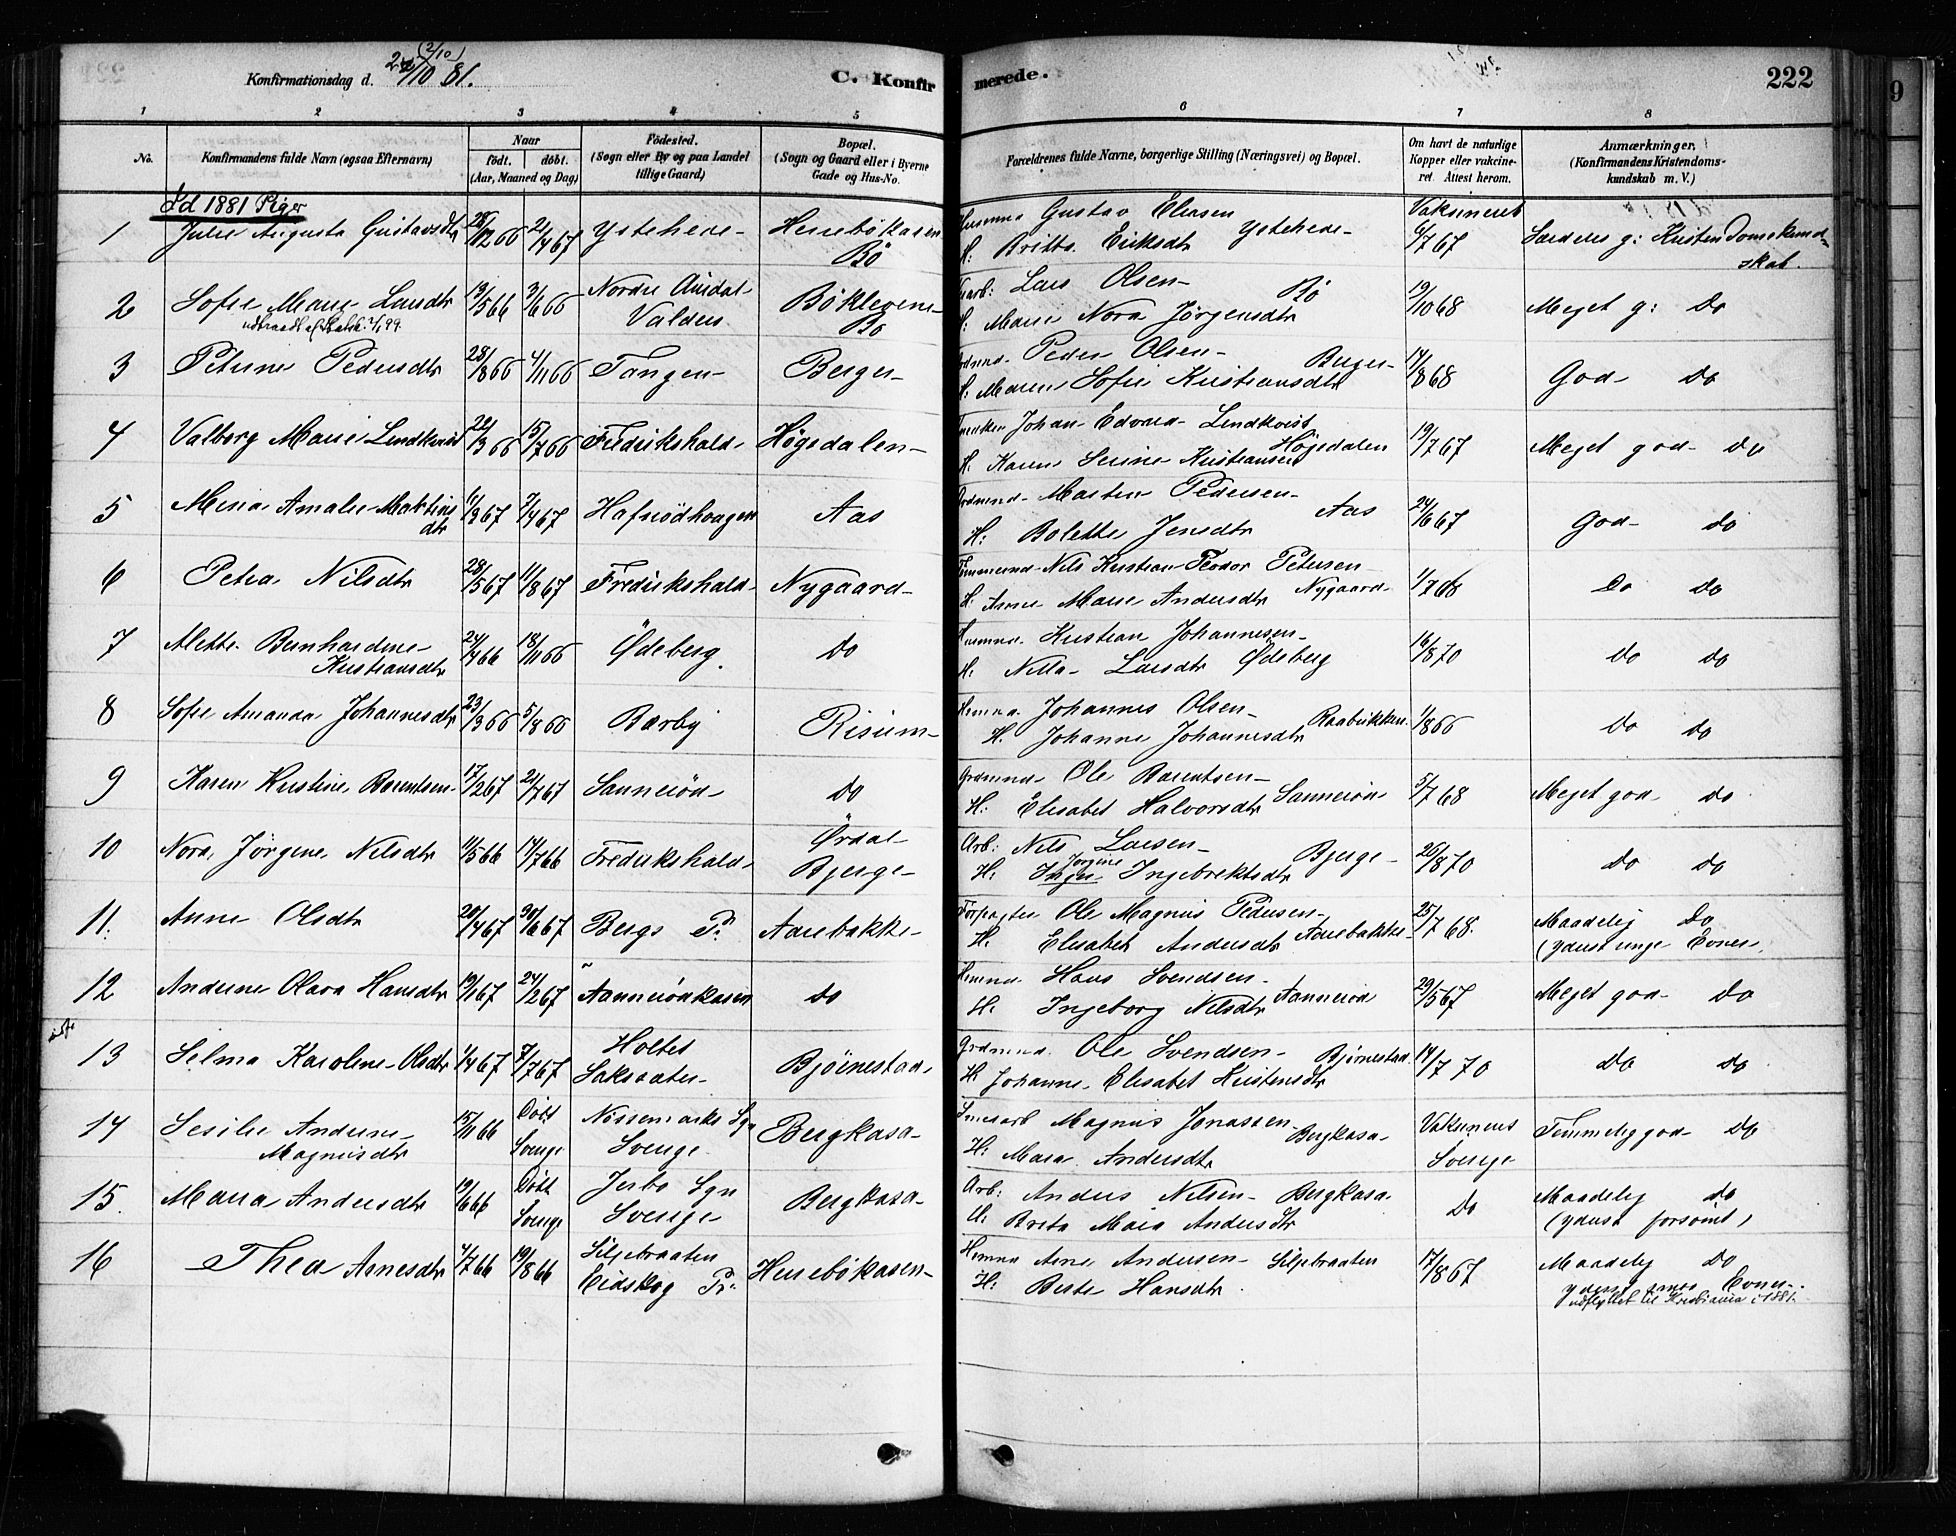 Konfirmationsdag d. 2/10 81.
(2/10)
C. Konfir
merede.
222
9
1 2 3 4 5 6 7 8
No.
Konfirmandens fulde Navn (ogsaa Efternavn)
Naar
födt. döbt.
(Aar, Maaned og Dag)
Födested.
(Sogn eller By og paa Landet
tillige Gaard)
Bopæl.
(Sogn og Gaard eller i Byerne
Gade og Hus-No.
Forældrenes fulde Navne, borgerlige Stilling (Næringsvei) og Bopæl.
Om havt de naturlige
Kopper eller vakcine-
ret. Attest herom.
Anmærkninger,
(Konfirmandens Kristendoms-
kundskab m. V.)
1881 Piger
1 Julie Augusta Gustavsdtr 28/12 66 21/4 67 Ystehede Bö Gustav Eliasen Ystehede Vaksineret
H: Britta Eriksdtr 6/7 67 Særdeles g: Kristendomskund-
skab.
2 Sofie Marie Larsdtr 13/5 66 3/6 66 Nordre Aurdal Bøklevene Lars Olsen Bø 19/10 68 Meget g: Do
Valders Bø H: Marie Nora Jørgensdtr
3 Petrine Pedersdtr 28/8 66 4/11 66 Tangen Berger Peder Olsen Berger 14/8 68 God Do
H: Maren Sofie Kristiansdtr
4 Valborg Marie Lindkvist 22/3 66 15/7 66 Fredrikshald Høgsdalen Johan Edvard Lindkvist 19/7 67 Meget god Do
H: Karen Serine Kristiansen Høgsdalen
5 Mina Amalie Martins 11/3 67 7/4 67 Aas Martin Pedersen Aas 24/6 67 God Do
dtr H: Bolette Jensdtr
6 Petra Nilsdtr 28/5 67 11/8 67 Fredrikshald Nygaard Nils Kristian Teodor Petersen 1/7 68 Do Do
H: Anne Marie Andersdtr Nygaard
7 Alette Bernhardine 24/4 66 18/11 66 Ødeberg Do Kristian Johannesen 16/8 70 Do Do
Kristiansdtr H: Nella Larsdtr Ødeberg
8 Sofie Amanda Johannesdtr 23/3 66 5/8 66 Barby Risum Johannes Olsen 1/8 66 Do Do
H: Johanne Johannesdtr
9 Karen Kristine Berentsen 17/2 67 21/7 67 Sannerød Do Grdmand Ole Berentsen Sannerød 5/7 68 Meget god Do
H: Elisabet Halvorsdtr
10 Nora Jørgine Nilsdtr 11/5 66 14/7 66 Fredrikshald Ørdal Arb: Nils Larsen Bjerge 26/8 70 Do Do
Bjerge H: Inger Ingebrektsdtr
Jorgine
11. Anne Olsdtr 20/4 67 30/6 67 Bergs P. Aarebakke Forpagter Ole Magnus Pedersen 25/7 68. Maadelig Do
H. Elisabet Andersdtr Aarebakke (yderst ringe Evner.
12 Anderine Olava Hansdtr 19/1 67 24/2 67 Aannerødkasen Do Hans Svendsen Aannerød 29/5 67 Meget god Do
H. Ingeborg Nilsdtr
13 Selma Karoline Olsdtr 1/4 67 7/7 67 Holtet Bjørnestad Grdmand. Ole Svendsen Bjørnestad 14/7 70 Do Do
H. Johanne Elisabet Kristensdtr
14 Sesilie Anderine 15/11 66 Döbt Nössemarks Sgn Bergkasa Magnus Jonassen Bergkasa Vaksineret Temmelig god Do
Magnusdtr Sverige Sverige H: Maria Andersdtr Sverige
15. Maria Andersdtr 19/6 66 Döbt Jerbo Sgn Bergkasa Arb: Anders Nilsen Bergkasa Do Maadelig Do
Sverige Sverige H: Breta Maia Andersdtr (yderst forsømt)
16 Thea Arnesdtr 4/7 66 19/8 66 Siljebraaten Arne Andersen Siljebraaten 17/8 67 Maadelig Do
Eidskog Pr: H: Berte Hansdtr yderst smaa Evner.
udflyttet til Kristiania i 1881.